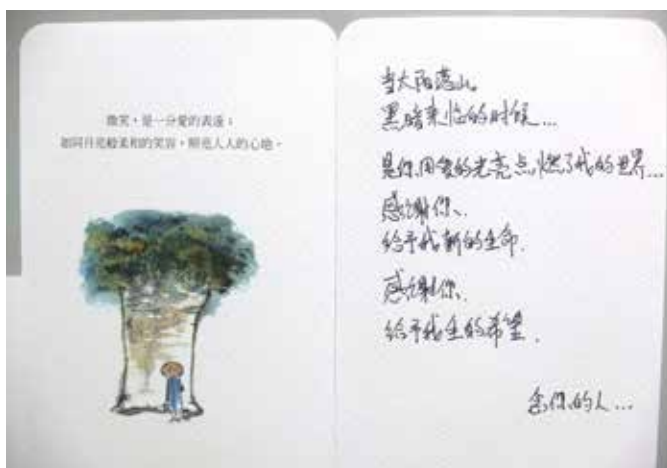 微笑，是一分愛的表達；
如同月光般柔和的笑容，照亮人人的心地。
当太阳落山。
黑暗来临的时候...
是你.用爱的光亮点燃了我的世界...
感谢你、
给予我新的生命.
感谢你、
给予我生的希望.
念你的人...